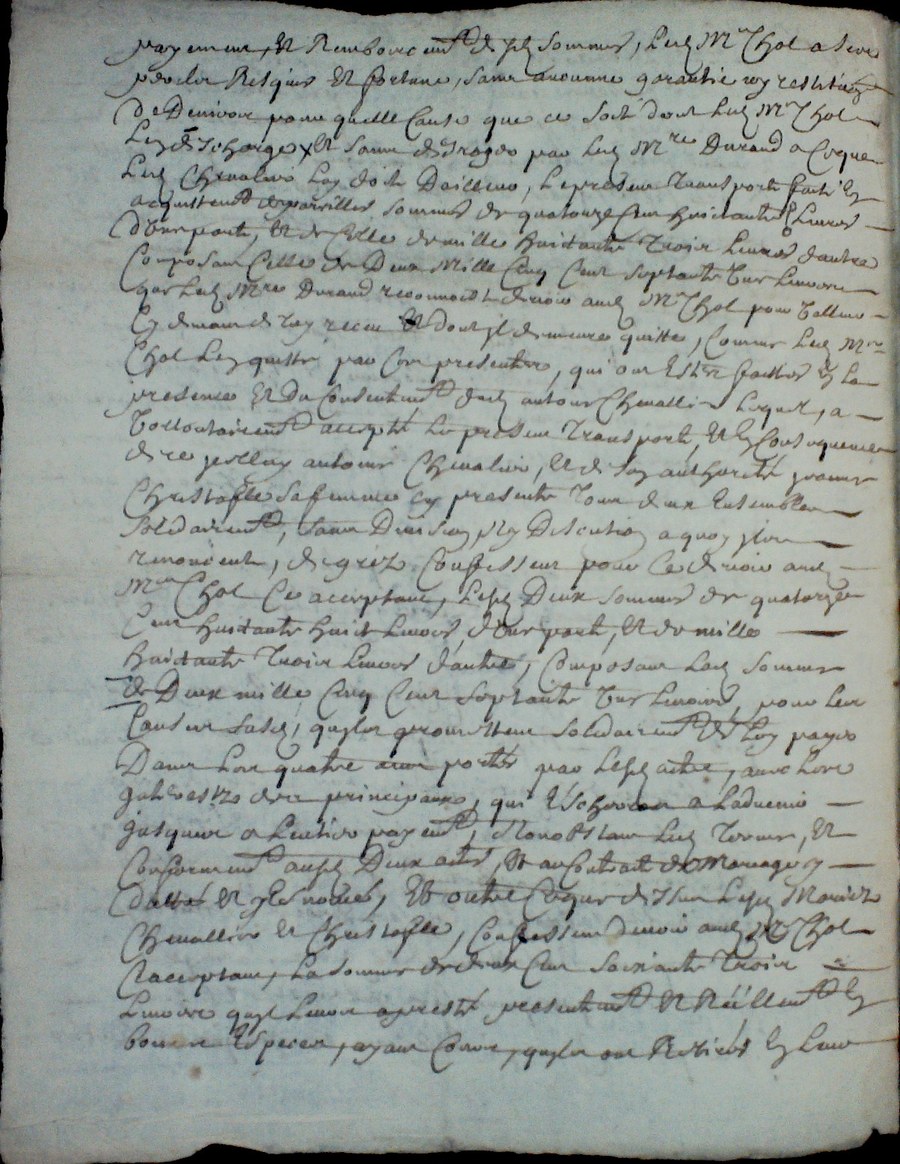 payement, Et Remboursemt desd sommes, Led Mr Chol a ses
perilz Risques Et fortune, sans aucunne garantie ny restitu͞on
de Deniers pour quelle Cause que ce soit dont Led Mr Chol
Led descharge Et sans par Led Mre Durand a Cequ
Led Chevalier Luy doit Dailleurs, Le present Transport faict En
acquittemt de pareilles sommes de quatorze Cent huictante Livres
d'Une part, Et de Celle de mille huictante Trois Livres d'autre
Composant Celle de Deux Mille Cinq Cent Septante Un Livres
que Led Mre Durand reconnoist devoir aud Mr Chol pour
Et dont il demeure quitte, Comme Led Mre
Chol Len quitte par Ces presentes, qui ont Esté faittes En La
presence Et du Consentemt dud antoine Chevallier Lequel, a
Vollontairemt accepté Le present Transport, Et En Consequence
de ce jcelluy antoine Chevalier, Et de son authorité
Christofle sa femme Cy presente Tous deux Ensemblem
Solidairemt, sans Division Ny Discution a quoy jlz ont
renoncent, de grez Confessent pour Ce devoir aud
Mre Chol Ce acceptant, Lesd Deux sommes de quatorze
Cent huictante huict Livres, d'Une part, Et de mille
huictante Trois Livres d'autre, Composant Lad somme
de Deux mille Cinq Cent Septante Un Livres, pour Les
Causes susd, quylz promettent Solidairemt de Luy payer
Dans Les quatre portés par Lesd actes, avec Les
jnterestz des principaux, qui Escherront a Ladvenir
jusques a Lentier payemt, Nonobstant Led Terme, Et
Conformemt ausd Deux actes, Et au Contrait de Mariage y
datté Et Esnoncés, Et outre Ceque dessus Lesd Mariez
Chevallier Et Christofle, Confessent devoir aud Mr Chol
Ce acceptant, La somme de deux Cent Soixante Trois
Livres quyl Leur a presté presentemt Et Reellemt En
bonnes Especes, ayant Cours, quylz ont Retirés En Leur